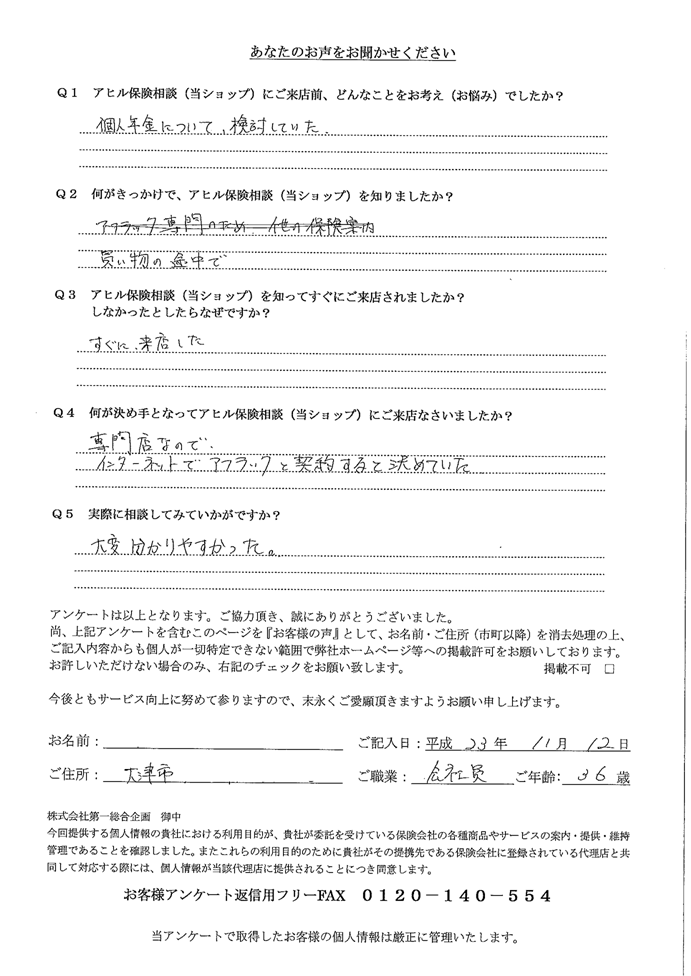 あなたのお声をお聞かせください
Q1 アヒル保険相談（当ショップ）にご来店前、どんなことをお考え（お悩み）でしたか？
個人年金について、検討していた。
Q2 何がきっかけで、アヒル保険相談（当ショップ）を知りましたか？
アフラック専門のため 他の保険案内
買い物の途中で
Q3 アヒル保険相談（当ショップ）を知ってすぐにご来店されましたか？
しなかったとしたらなぜですか？
すぐに、来店した
Q4 何が決め手となってアヒル保険相談（当ショップ）にご来店なさいましたか？
専門店なので、
インターネットでアフラックと契約すると決めていた
Q5 実際に相談してみていかがですか？
大変分かりやすかった。
アンケートは以上となります。ご協力頂き、誠にありがとうございました。
尚、上記アンケートを含むこのページを『お客様の声』として、お名前・ご住所（市町以降）を消去処理の上、
ご記入内容からも個人が一切特定できない範囲で弊社ホームページ等への掲載許可をお願いしております。
お許しいただけない場合のみ、右記のチェックをお願い致します。 掲載不可 □
今後ともサービス向上に努めて参りますので、末永くご愛願頂きますようお願い申し上げます。
お名前： ご記入日：平成 23 年 11 月 12 日
ご住所： 大津市 ご職業： 会社員 ご年齢： 36 歳
株式会社第一総合企画 御中
今回提供する個人情報の貴社における利用目的が、貴社が委託を受けている保険会社の各種商品やサービスの案内・提供・維持
管理であることを確認しました。またこれらの利用目的のために貴社がその提携先である保険会社に登録されている代理店と共
同して対応する際には、個人情報が当該代理店に提供されることにつき同意します。
お客様アンケート返信用フリーFAX 0120－140－554
当アンケートで取得したお客様の個人情報は厳正に管理いたします。